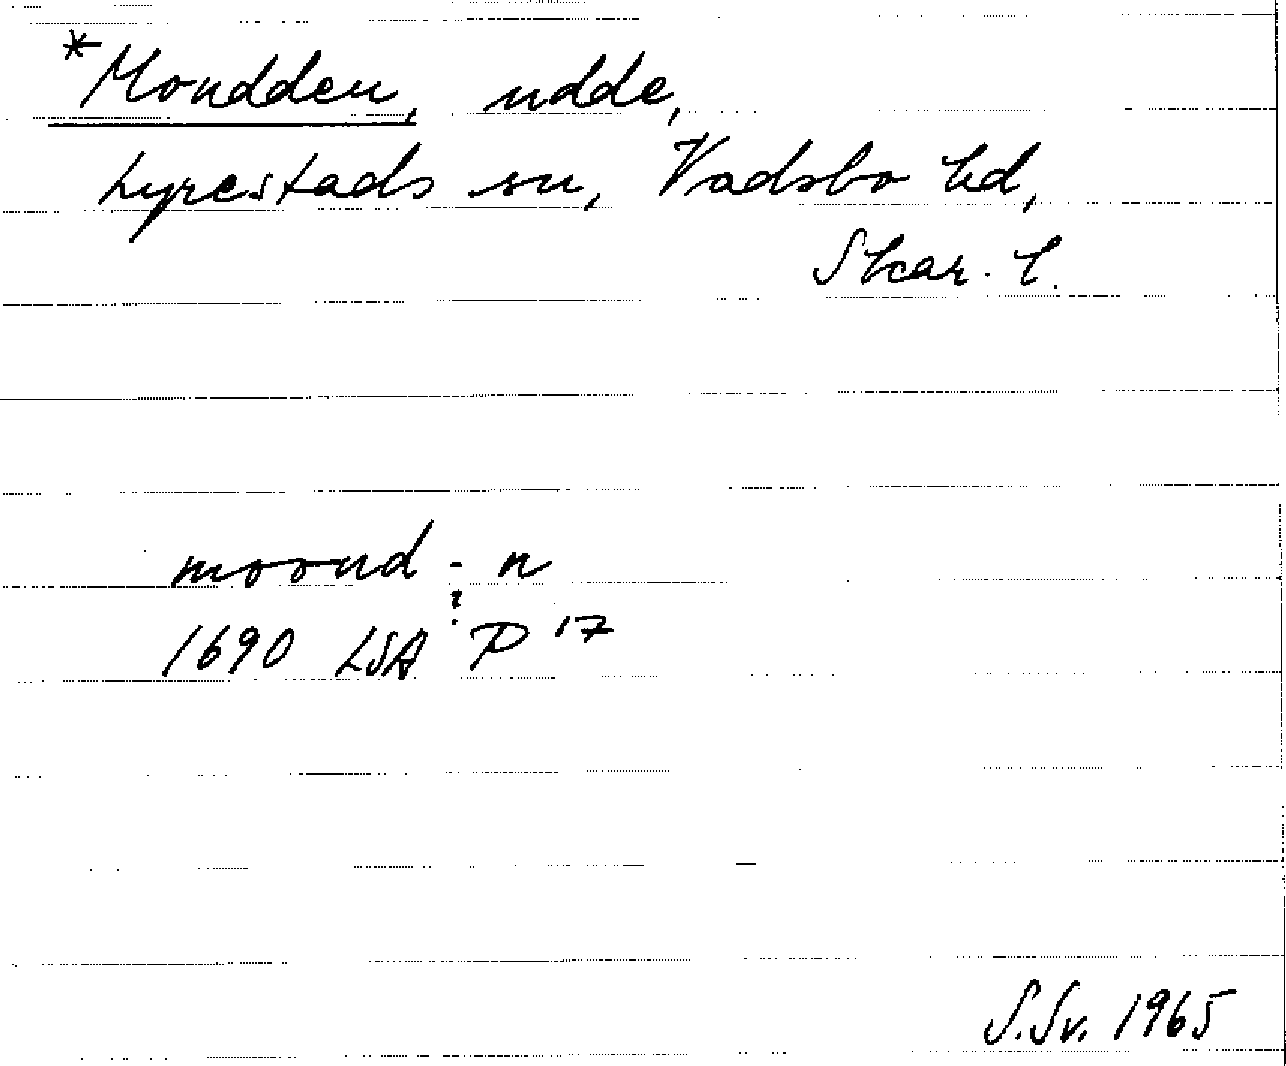 *Moudden, udde,
Lyrestads sn, Vadsbo hd,
Skar. l.
mooud - n
!
1690 LSA P 17
S.Sv. 1965